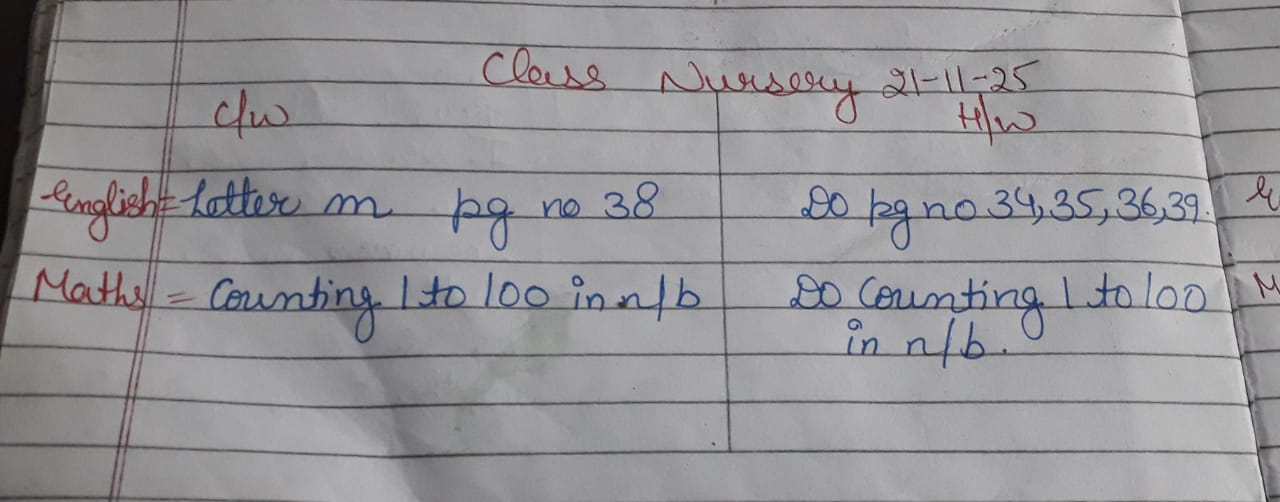 Class Nursery 21-11-25
C/w H/w
English = Letter m pg no 38 Do pg no 34,35,36,39.
Maths = Counting 1 to 100 in n/b Do Counting 1 to 100
in n/b.